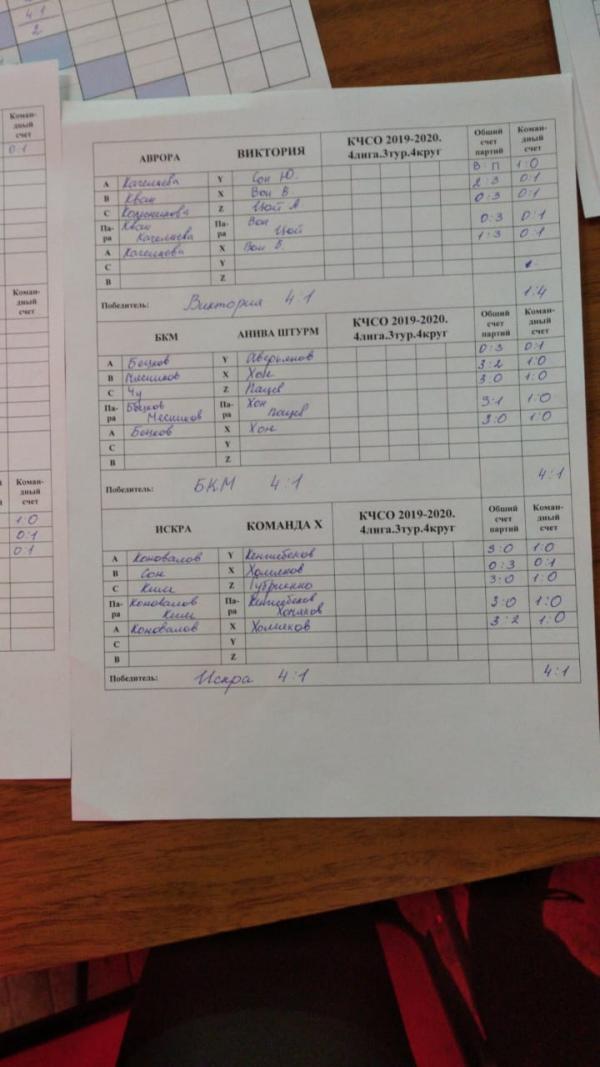 4:1
2
Коман-
дный
счет
0:1
АВРОРА ВИКТОРИЯ КЧСО 2019-2020. 4лига.3тур.4круг Общий счет партий Коман-дный счет
А Y Сон Ю. В:П 1:0
В Кван X Вон В. 2:3 0:1
С Z Цой А 0:3 0:1
Па-ра Кван Па-ра Вон Цой 0:3 0:1
А X Вон В. 1:3 0:1
С Y
В Z
Победитель: Виктория 4:1 1:4
БКМ АНИВА ШТУРМ КЧСО 2019-2020. 4лига.3тур.4круг Общий счет партий Коман-дный счет
А Бецков Y Аверьянов 0:3 0:1
В Месников X Хон 3:2 1:0
С Чу Z Пацев 3:0 1:0
Па-ра Бецков Месников Па-ра Хон Пацев 3:1 1:0
А Бецков X Хон 3:0 1:0
С Y
В Z
Победитель: БКМ 4:1 4:1
ИСКРА КОМАНДА X КЧСО 2019-2020. 4лига.3тур.4круг Общий счет партий Коман-дный счет
А Коновалов Y Кеншебеков 3:0 1:0
В Сон X Хомяков 0:3 0:1
С Ким Z Губриенко 3:0 1:0
Па-ра Коновалов Ким Па-ра Кеншебеков Хомяков 3:0 1:0
А Коновалов X Хомяков 3:2 1:0
С Y
В Z
Победитель: Искра 4:1 4:1
Коман-
дный
счет
Коман-
дный
счет
1:0
0:1
0:1